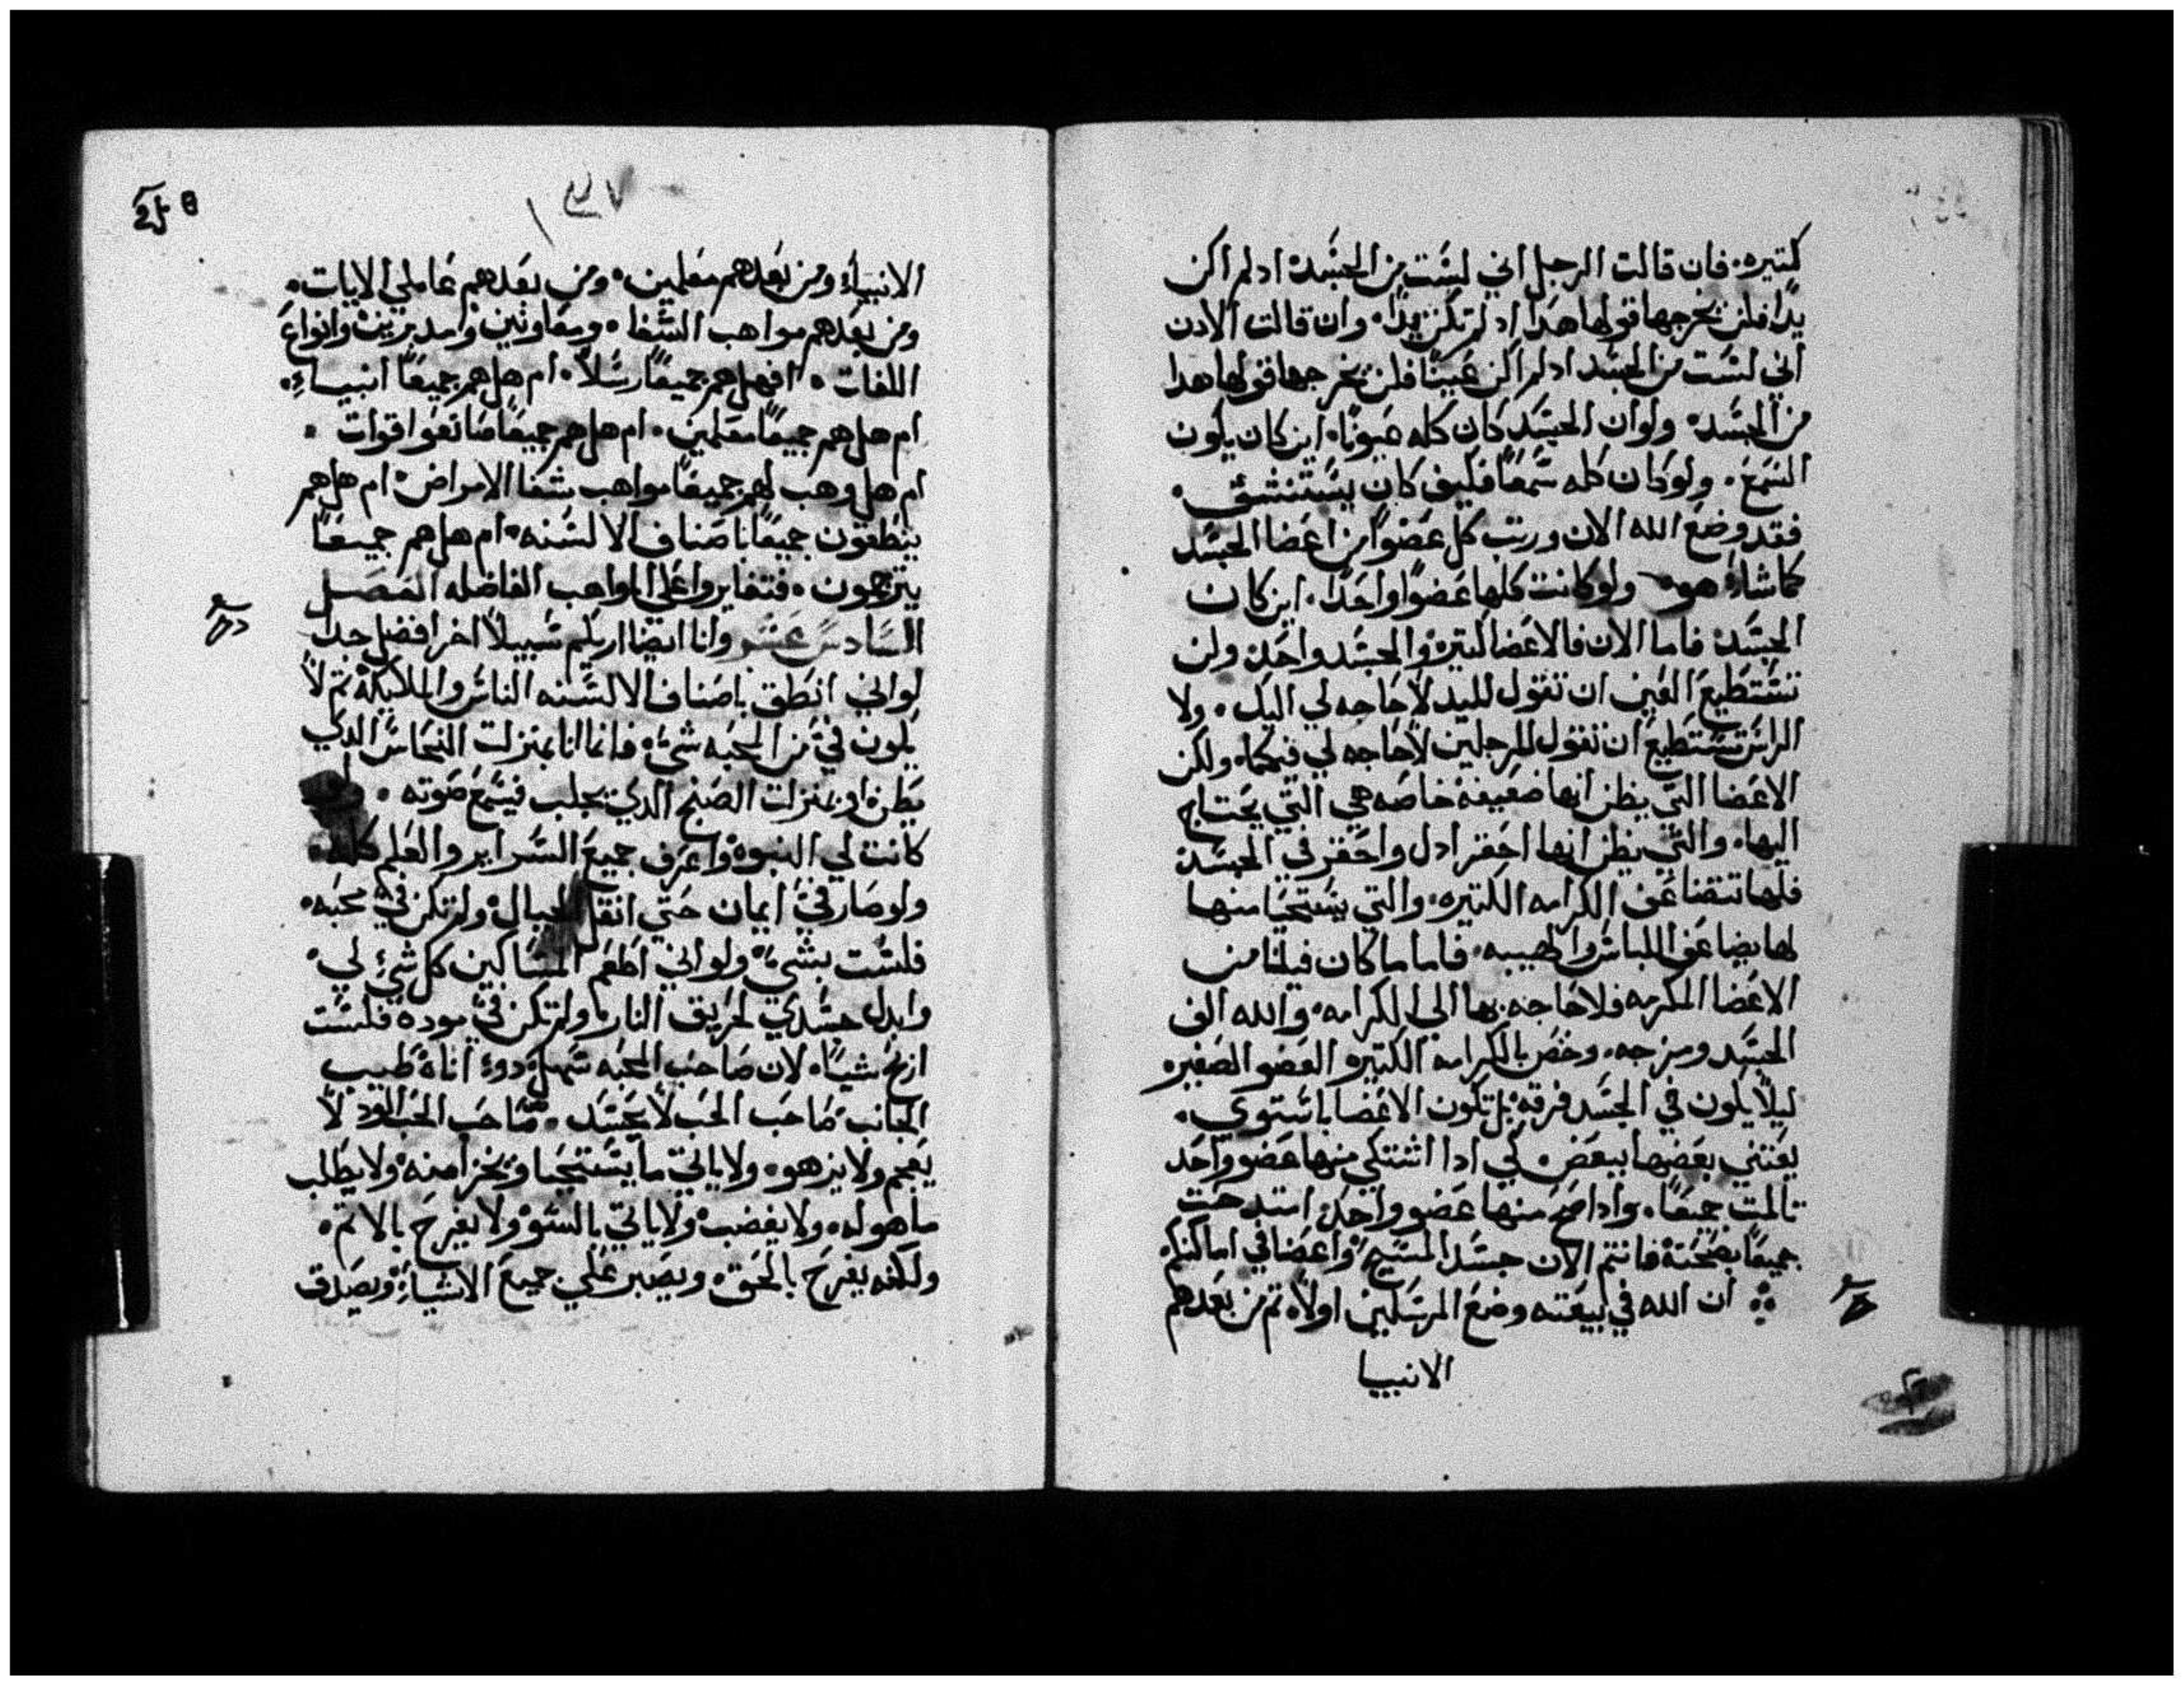 كتيره. فان قالت الرجل اني لست من الجسد ادلم اكن
يدا فلن يخرجها قولها هدا اد لم تكن يدا. وان قالت الادن
اني لست من الجسد ادلم اكن عينا فلن يخرجها قولها هدا
من الجسد. ولو ان الجسد كان كله عيونا. اين كان يكون
السمع. ولو كان كله سمعا فكيف كان يستنشي.
فقد وضع الله الان ورتب كل عضوا من اعضا الجسد
كما شاء هو. ولو كانت كلها عضوا واحدا. اين كان
الجسد. فاما الان فالاعضا كتيره والجسد واحد. ولن
تستطيع العين ان تقول لليد لا حاجه لي اليك. ولا
الراس تستطيع ان تقول للرجلين لا حاجه لي فيكما. ولكن
الاعضا التي يظن انها ضعيفه خاصه هي التي يحتاج
اليها. والتي يظن انها احقر ادل واحقر في الجسد
فلها تتضاعف الكرامه الكتيره. والتي يستحيا منها
لها يضاعف اللباس والهيبه. فاما ما كان فينا من
الاعضا المكرمه فلا حاجه بها الي الكرامه. والله الف
الجسد ومزجه. وخص بالكرامه الكتيره العضو الصغير
ليلا يكون في الجسد فرقه. بل تكون الاعضا باستوي.
يعتني بعضها ببعض. لكي ادا اشتكي منها عضو واحد
تالمت جميعا. وادا صح منها عضو واحد. امتدحت
جميعا بصحته فانتم الان جسد المسيح. واعضا في اماكنكم
ان الله في بيعته وضع المرسلين اولا. تم من بعدهم
الانبيا
٣٧
الانبياء ومن بعدهم معلمين. ومن بعدهم عاملي الايات.
ومن بعدهم مواهب الشفا. ومعاونين ومدبرين وانواع
اللغات. افهل هم جميعا رسلا. ام هل هم جميعا انبياء.
ام هل هم جميعا معلمين. ام هل هم جميعا صانعوا قوات.
ام هل وهب لهم جميعا مواهب شفا الامراض. ام هل هم
ينطقون جميعا باصناف الالسنه. ام هل هم جميعا
يترجمون. فتغايروا علي المواهب الفاضله الفصل
السادس عشر وانا ايضا اريكم سبيلا اخر افضل جدا
لو اني انطق باصناف الالسنه الناس والملايكه تم لا
يكون في من المحبه شيء. فانما انا بمنزلت النحاس الدي
يطن او بمنزلت الصنج الدي يجلب فيسمع صوته.
كانت لي النبوه واعرف جميع السراير والعلم كله.
ولو صار في ايمان حتي انقل الجبال. ولم تكن في محبه.
فلست بشيء. ولو اني اطعم المساكين كل شي لي.
وابدل جسدي لحريق النار. ولم تكن في موده فلست
اربح شيا. لان صاحب المحبه سهل. دوء اناه طيب
الجانب. صاحب الحب لا يحسد. صاحب الحب الود لا
يعجم ولا يزهو. ولا ياتي ما يستحيا ويخزا منه ولا يطلب
ما هو له. ولا يغضب. ولا ياتي بالسو ولا يفرح بالاتم.
ولكنه يفرح بالحق. ويصبر علي جميع الاشياء. ويصدق